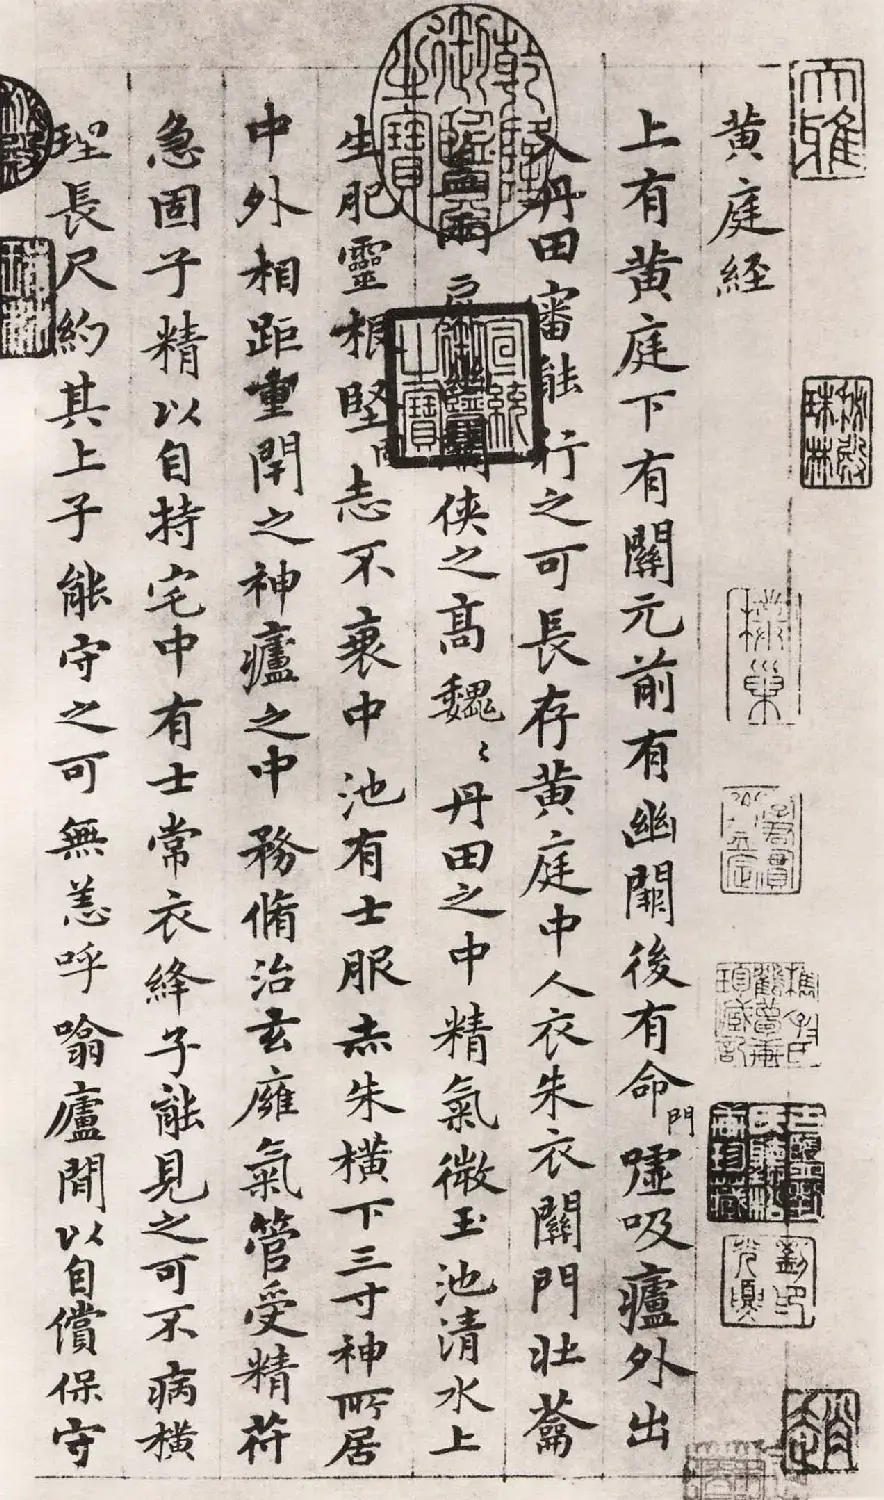 大雅
秘殿珠林
黄庭経
上有黄庭下有關元前有幽闕後有命門噓吸廬外出
入丹田審能行之可長存黄庭中人衣朱衣關門壯蘥
蓋兩扉幽闕俠之高魏〻丹田之中精氣微玉池清水上
生肥靈根堅同志不衰中池有士服赤朱橫下三寸神所居
中外相距重閇之神廬之中務脩治玄廱氣管受精苻
急固子精以自持宅中有士常衣絳子能見之可不病橫
理長尺約其上子能守之可無恙呼噏廬間以自償保守
乾隆御覽之寶
宣統御覽之寶